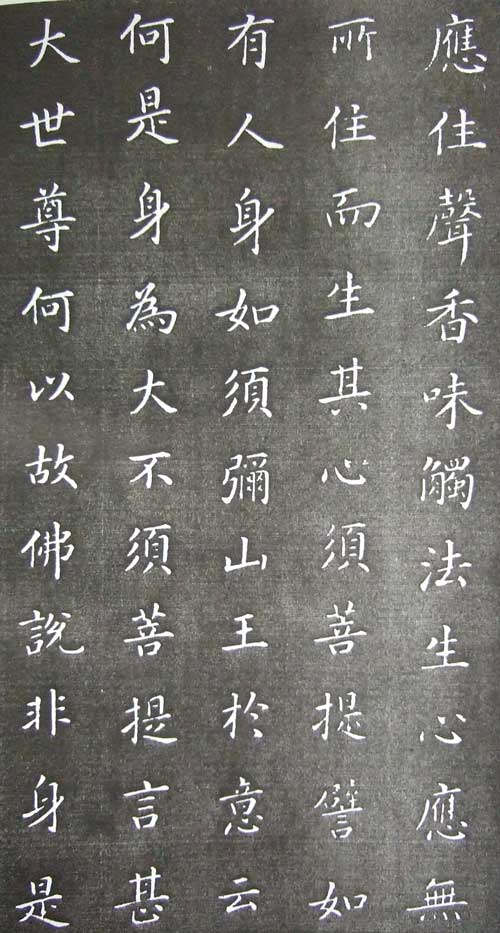 應住聲香味觸法生心應無
所住而生其心須菩提譬如
有人身如須彌山王於意云
何是身為大不須菩提言甚
大世尊何以故佛說非身是